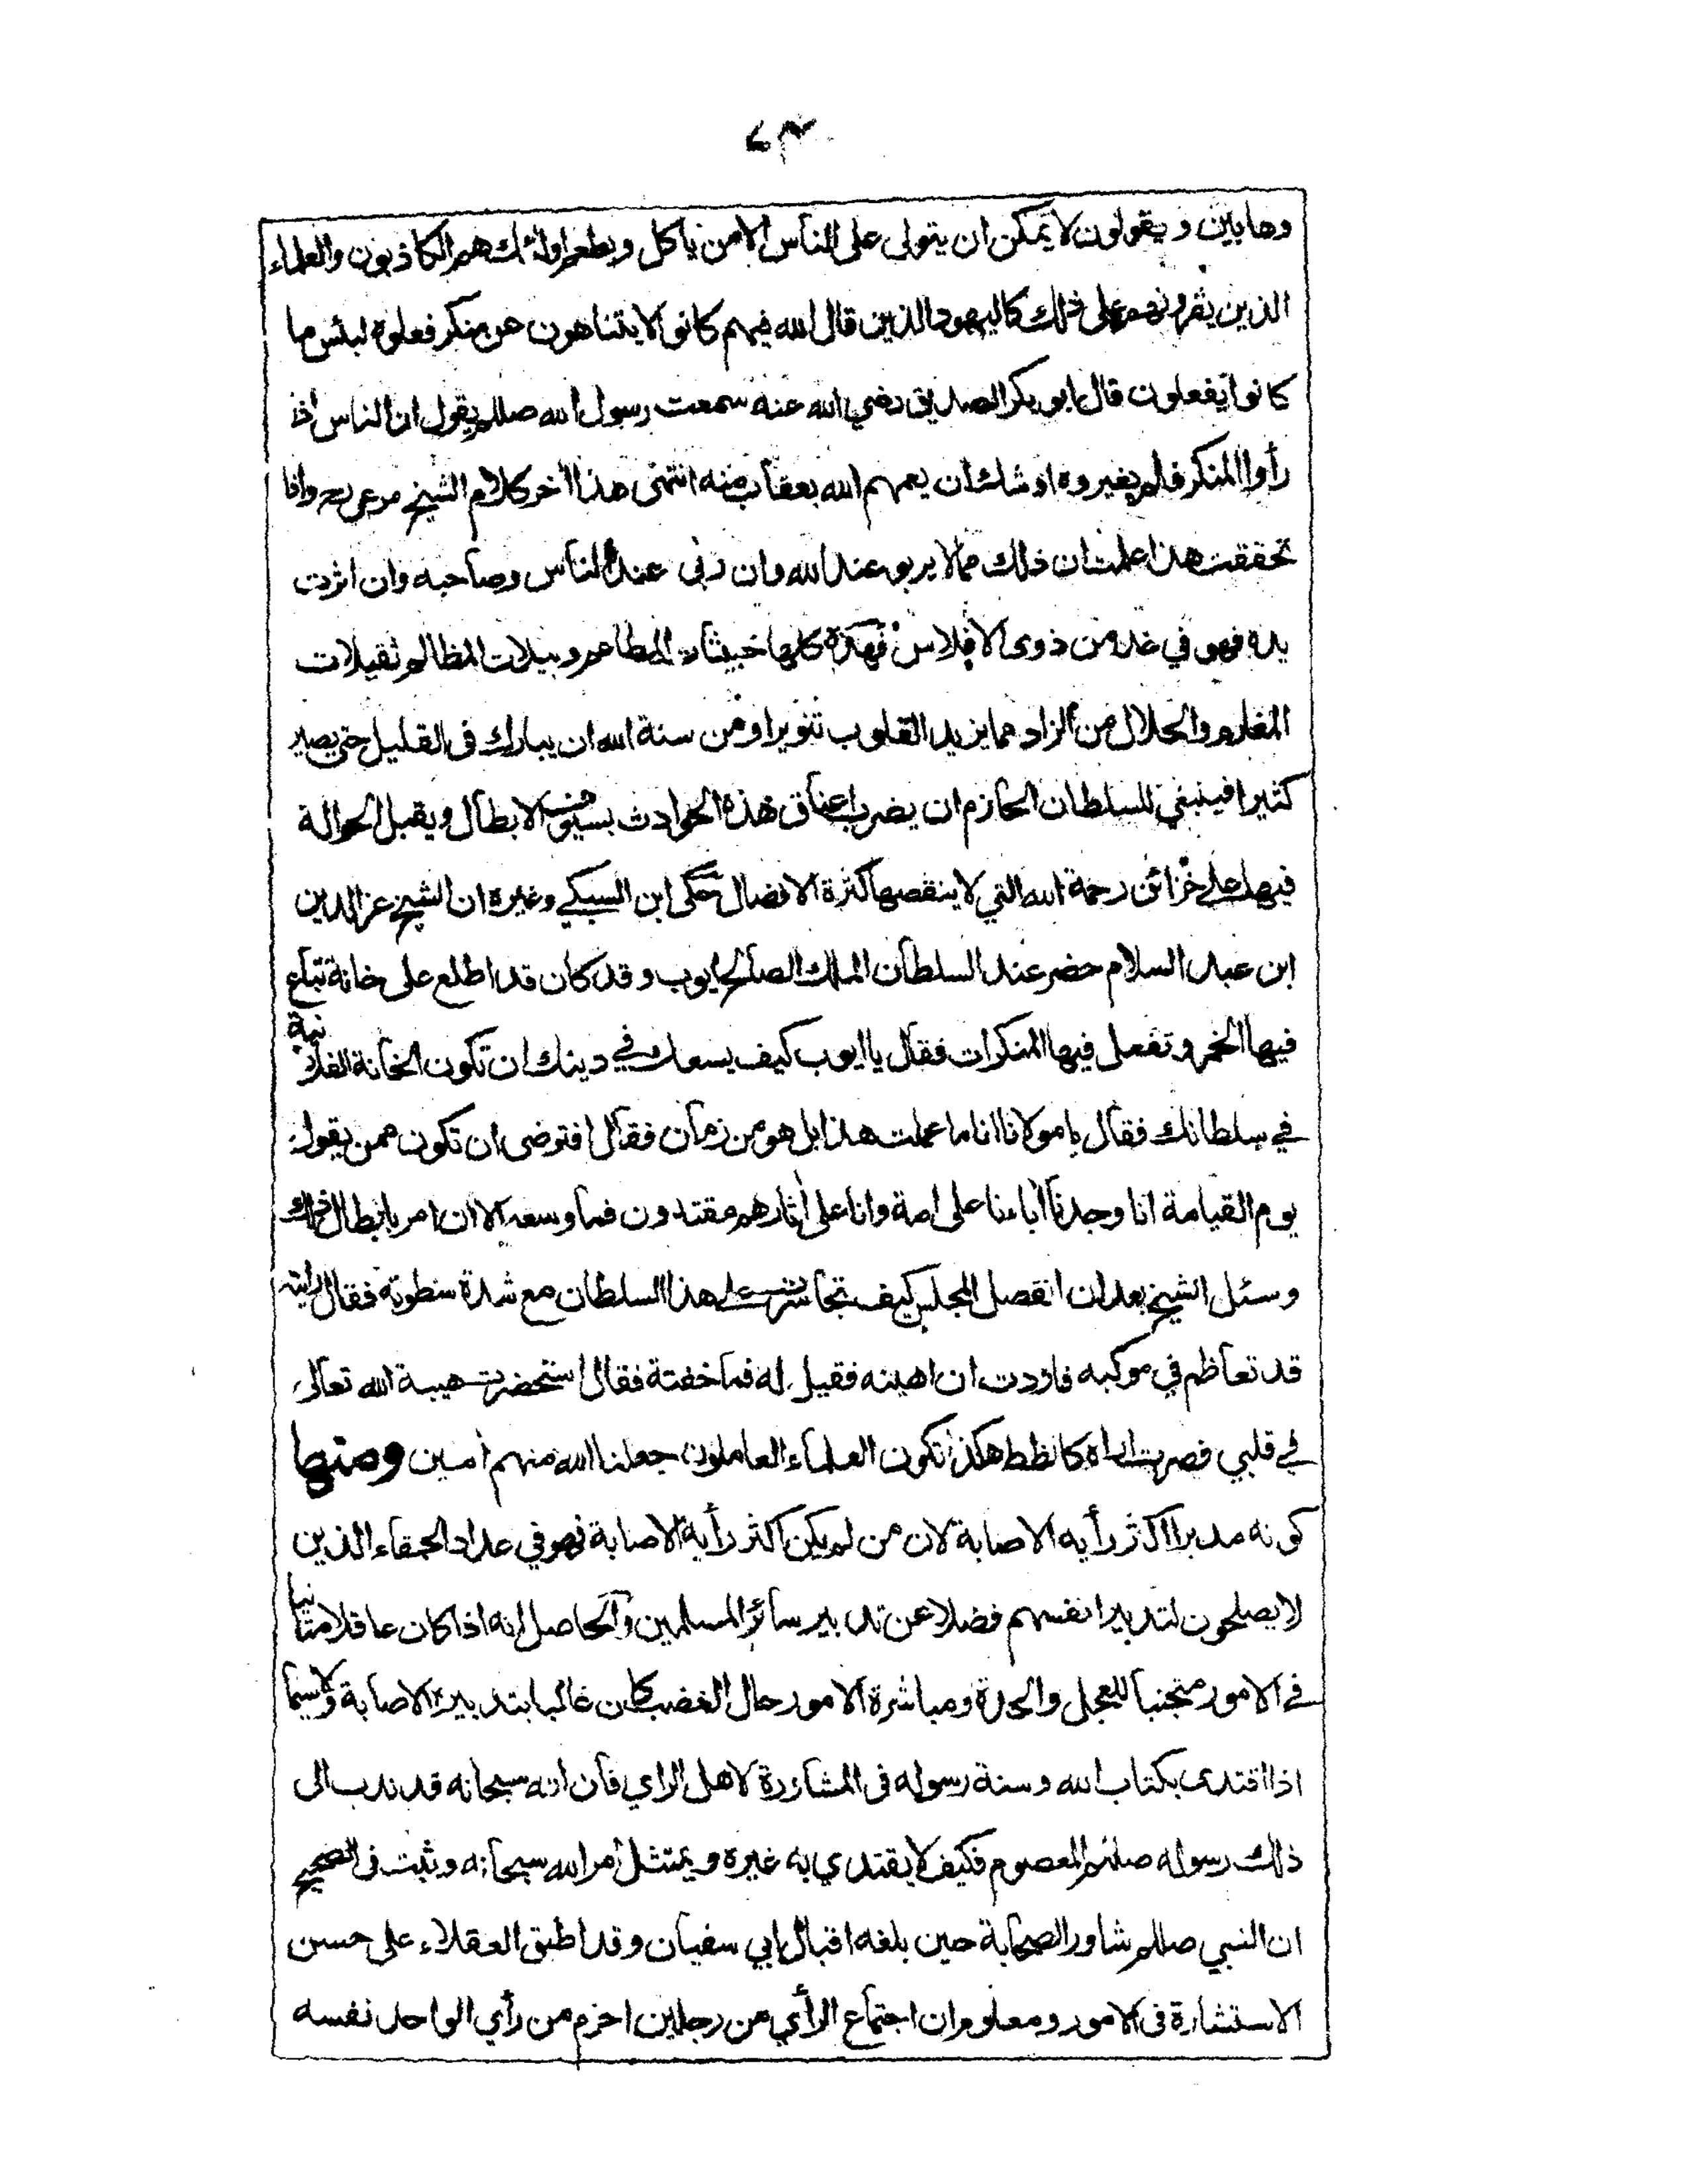 وهابين و يقولون لا يمكن ان يتولى على الناس الا من ياكل ويطعم اولئك هم الكاذبون والعلماء
الذين يقرونهم على ذلك كاليهود الذين قال الله فيهم كانوا لا يتناهون عن منكر فعلوه لبئس ما
كانوا يفعلون قال ابو بكر الصديق رضي الله عنه سمعت رسول الله صللم يقول ان الناس اذا
رأوا المنكر فلم يغيروه اوشك ان يعمهم الله بعقاب منه انتهى هذا أخر كلام الشيخ مرعي رحه واذا
تحققت هذا علمت ان ذلك مما لا يربو عند الله وان ربى عند الناس وصاحبه وان اثرت
يده فهو في غد من ذوى الافلاس فهذه كلها خبيثات المطاعم وبيلات المظالم ثقيلات
المغارم والحلال من الزاد مما يزيد القلوب تنويرا ومن سنة الله ان يبارك فى القليل حتى يصير
كثيرا فينبغي للسلطان الحازم ان يضرب اعناق هذه الحوادث بسيوف الابطال ويقبل الحوالة
فيها على خزائن رحمة الله التي لا ينقصها كثرة الافضال حكى ابن السبكي وغيره ان الشيخ عز الدين
ابن عبد السلام حضر عند السلطان الملك الصالح ايوب وقد كان قد اطلع على خانة تباع
فيها الخمر وتفعل فيها المنكرات فقال يا ايوب كيف يسعك في دينك ان تكون الخانة الفلانية
في سلطانك فقال يا مولانا انا ما عملت هذا بل هو من زمان فقال افترضى ان تكون ممن يقول
يوم القيامة انا وجدنا أبائنا على امة وانا على أثارهم مقتدون فما وسعه الا ان امر بابطال ذلك
وسئل الشيخ بعد ان انفصل المجلس كيف تجاسرت على هذا السلطان مع شدة سطوته فقال رايته
قد تعاظم في موكبه فاردت ان اهينه فقيل له فما خفتة فقال استحضرت هيبة الله تعالى
في قلبي فصرت اراه كالقط هكذا تكون العلماء العاملون جعلنا الله منهم أمين ومنها
كونه مدبرا اكثر رأيه الاصابة لان من لم يكن اكثر رأية الاصابة فهو في عداد الحمقاء الذين
لا يصلحون لتدبير انفسهم فضلا عن تدبير سائر المسلمين والحاصل انه اذا كان عاقلا متانيا
في الامور متجنبا للعجل والحدة ومباشرة الامور حال الغضب كان غالبا بتدبيره الاصابة ولاسيما
اذا اقتدى بكتاب الله وسنة رسوله فى المشاورة لاهل الراي فان الله سبحانه قد ندب الى
ذلك رسوله صللم المعصوم فكيف لا يقتدي به غيره ويمتثل أمر الله سبحانه وثبت فى الصحيح
ان النبي صللم شاور الصحابة حين بلغه اقبال ابي سفيان وقد اطبق العقلاء على حسن
الاستشارة فى الامور ومعلوم ان اجتماع الرأي من رجلين احزم من رأي الواحد نفسه